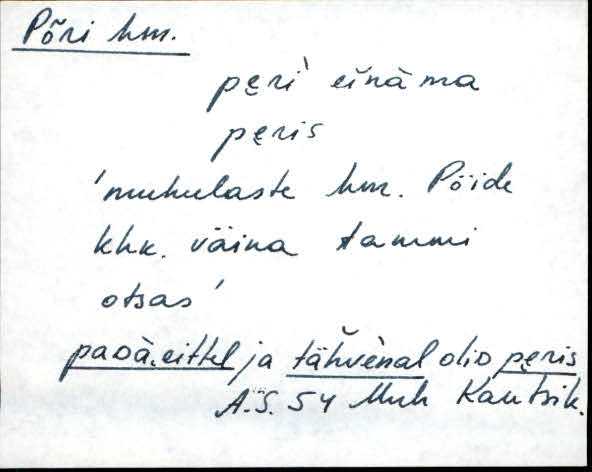 Põri hm.
pęrì̬ einàma
pęris
'muhulaste hm. Pöide
khk. väina tammi
otsas'
paoà,eittel ja tähvènal olio pęris
A.S. 54 Muh Kantsik.